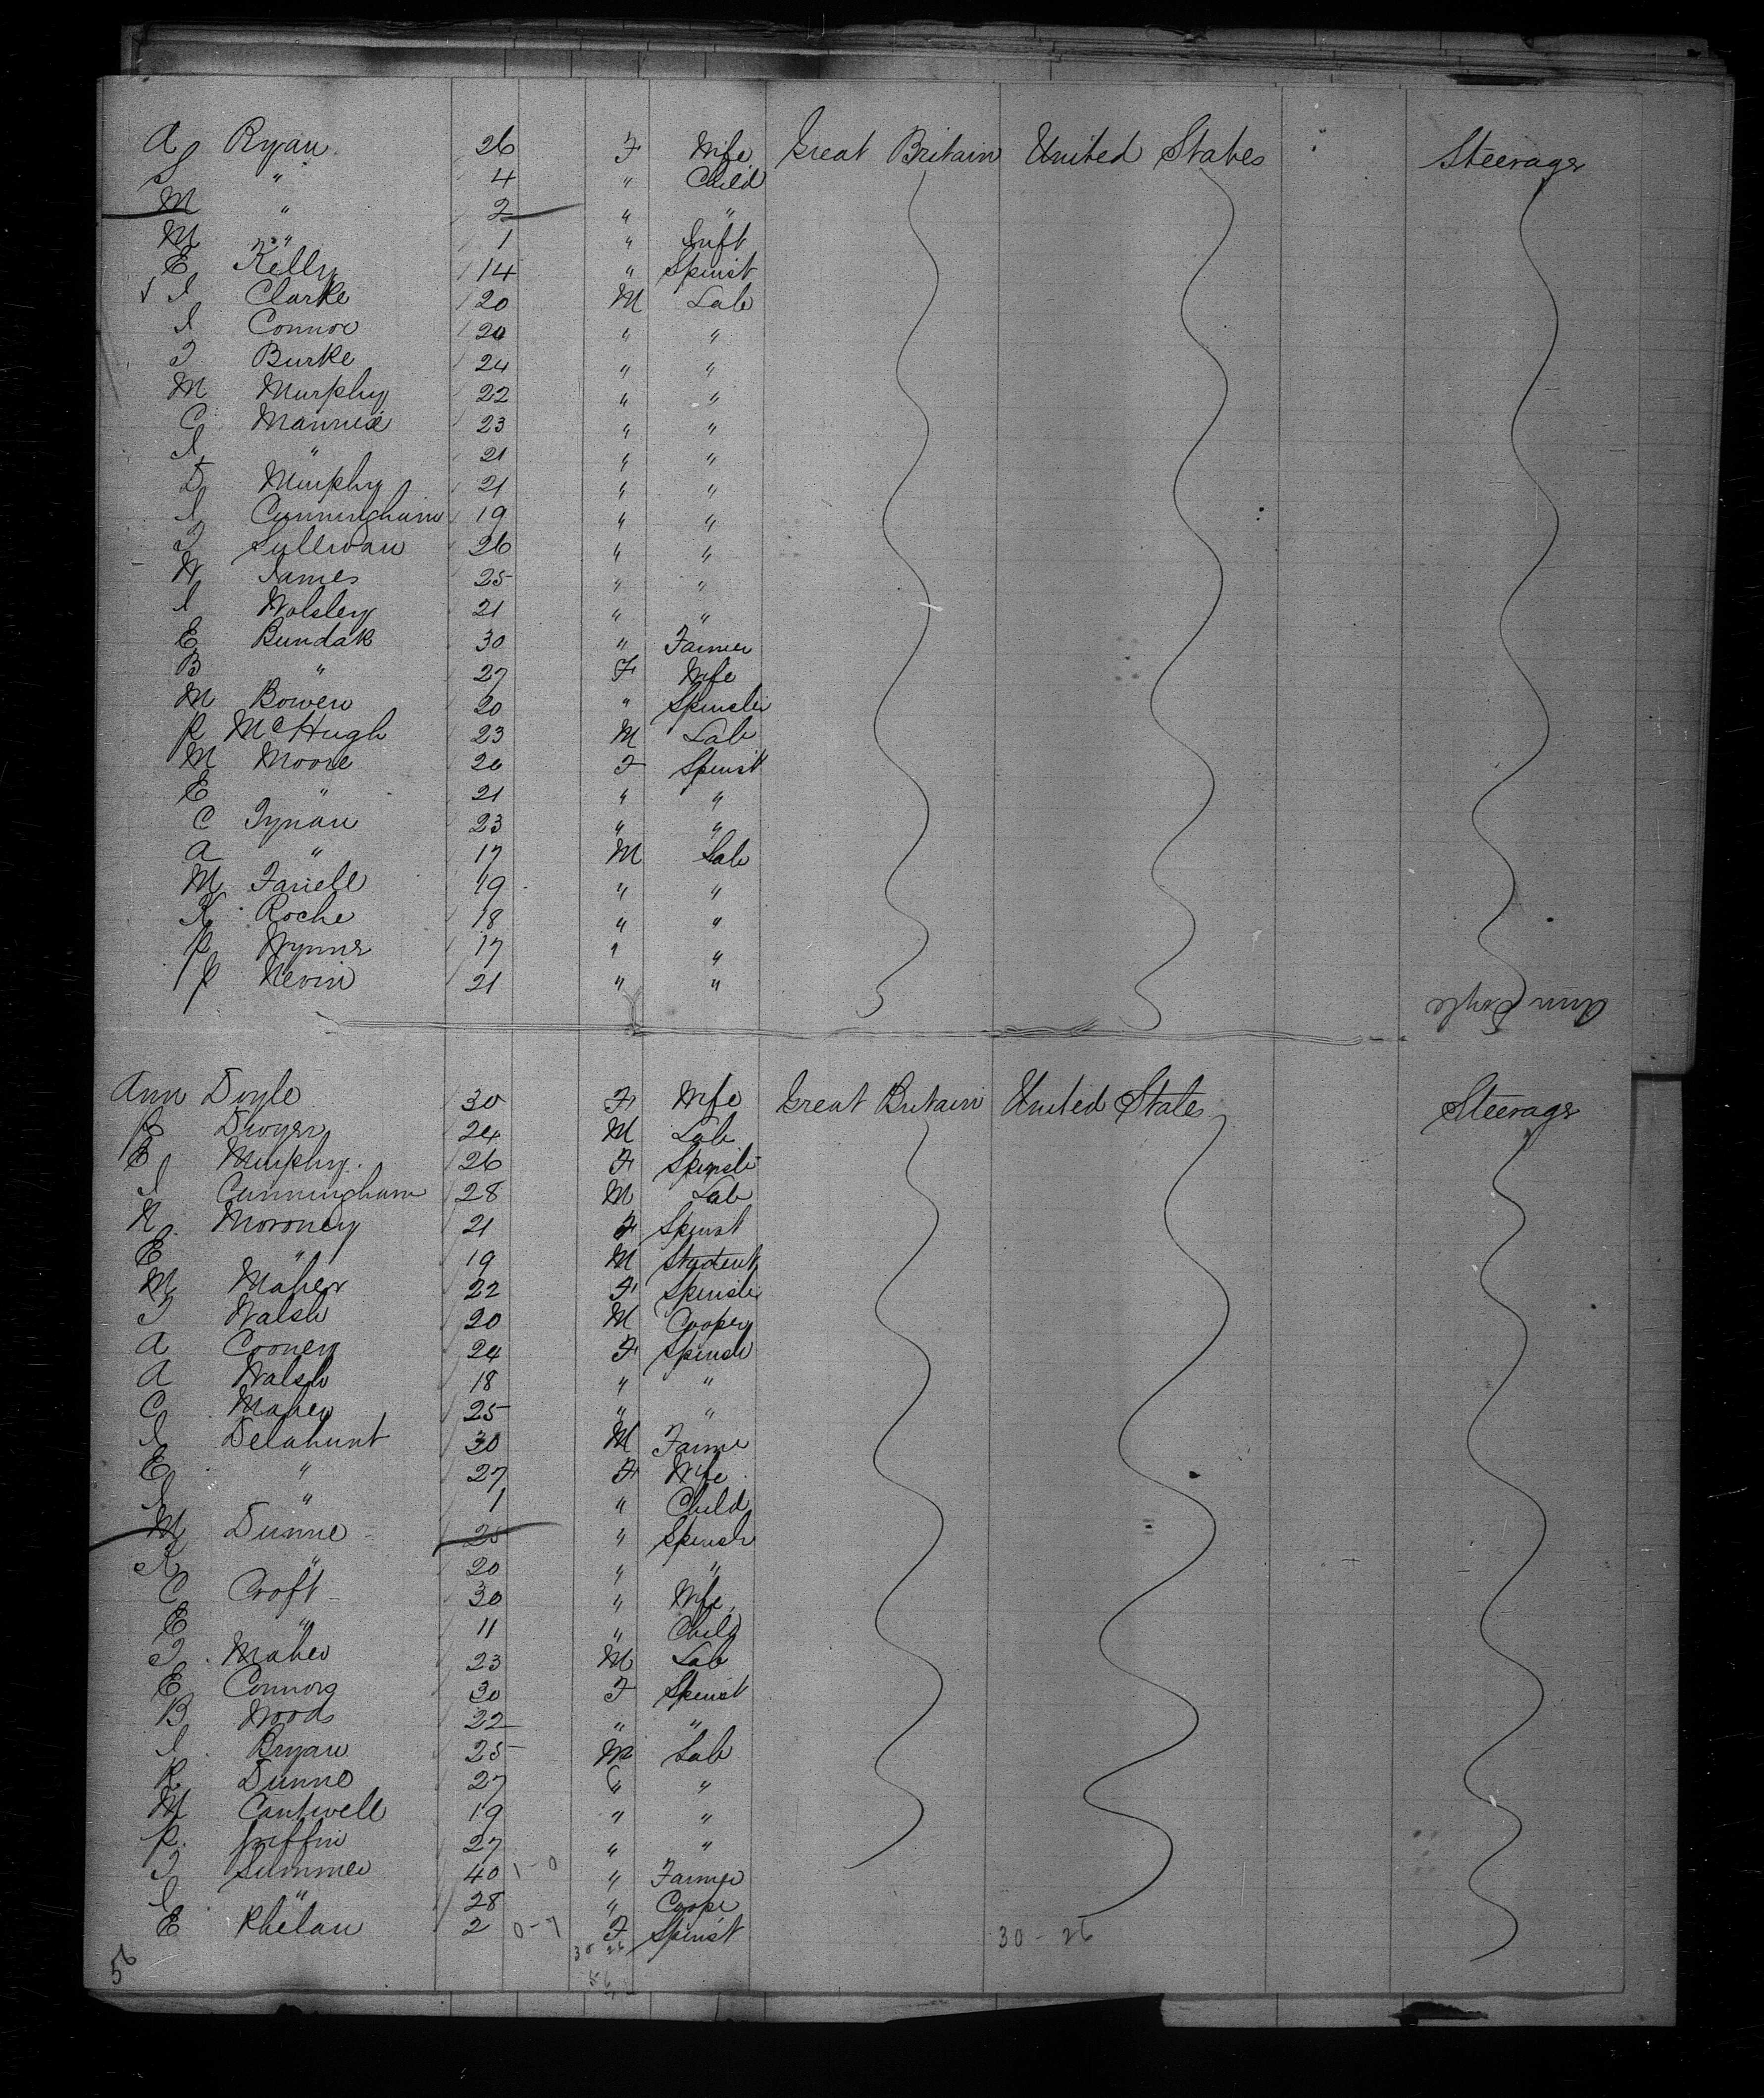 A Ryan 26 F Wife Great Britain United States Steerage
S " 4 " Child
M " 2 " "
M " 1 " Inft
E Kelly 14 " Spinst
J Clarke 20 M Lab
J Connor 20 " "
T Burke 24 " "
M Murphy 22 " "
C Mannix 23 " "
J " 21 " "
D Murphy 21 " "
J Cunningham 19 " "
T Sullivan 26 " "
W James 25 " "
J Wolsley 21 " "
E Bundak 30 " Farmer
B " 27 F Wife
M Bowen 20 " Spinster
P McHugh 23 M Lab
M Moore 20 F Spinst
E " 21 " "
C Tynan 23 " "
A " 17 M Lab
M Farrell 19 " "
K Roche 18 " "
P Wynne 17 " "
P Nevin 21 " "
Ann Doyle
Ann Doyle 30 F Wife Great Britain United States Steerage
P Dwyer 24 M Lab
E Murphy 26 F Spinster
J Cunningham 28 M Lab
N Moroney 21 F Spinst
E " 19 M Student
M Maher 22 F Spinster
T Walsh 20 M Cooper
A Cooney 24 F Spinster
A Walsh 18 " "
C Maher 25 " "
J Delahunt 30 M Farmer
E " 27 F Wife
J " 1 " Child
M Dunne 20 " Spinster
K " 20 " "
C Croft 30 " Wife
E " 11 " Child
T Maher 23 M Lab
E Connors 30 F Spinst
B Woods 22 " "
J Bryan 25 M Lab
P Dunne 27 " "
M Cantwell 19 " "
P. Griffin 27 " "
T Summer 40 1-0 " Farmer
J " 28 " Coope
E Phelan 2 0-7 F Spinst 30 - 26
30 26
56
56